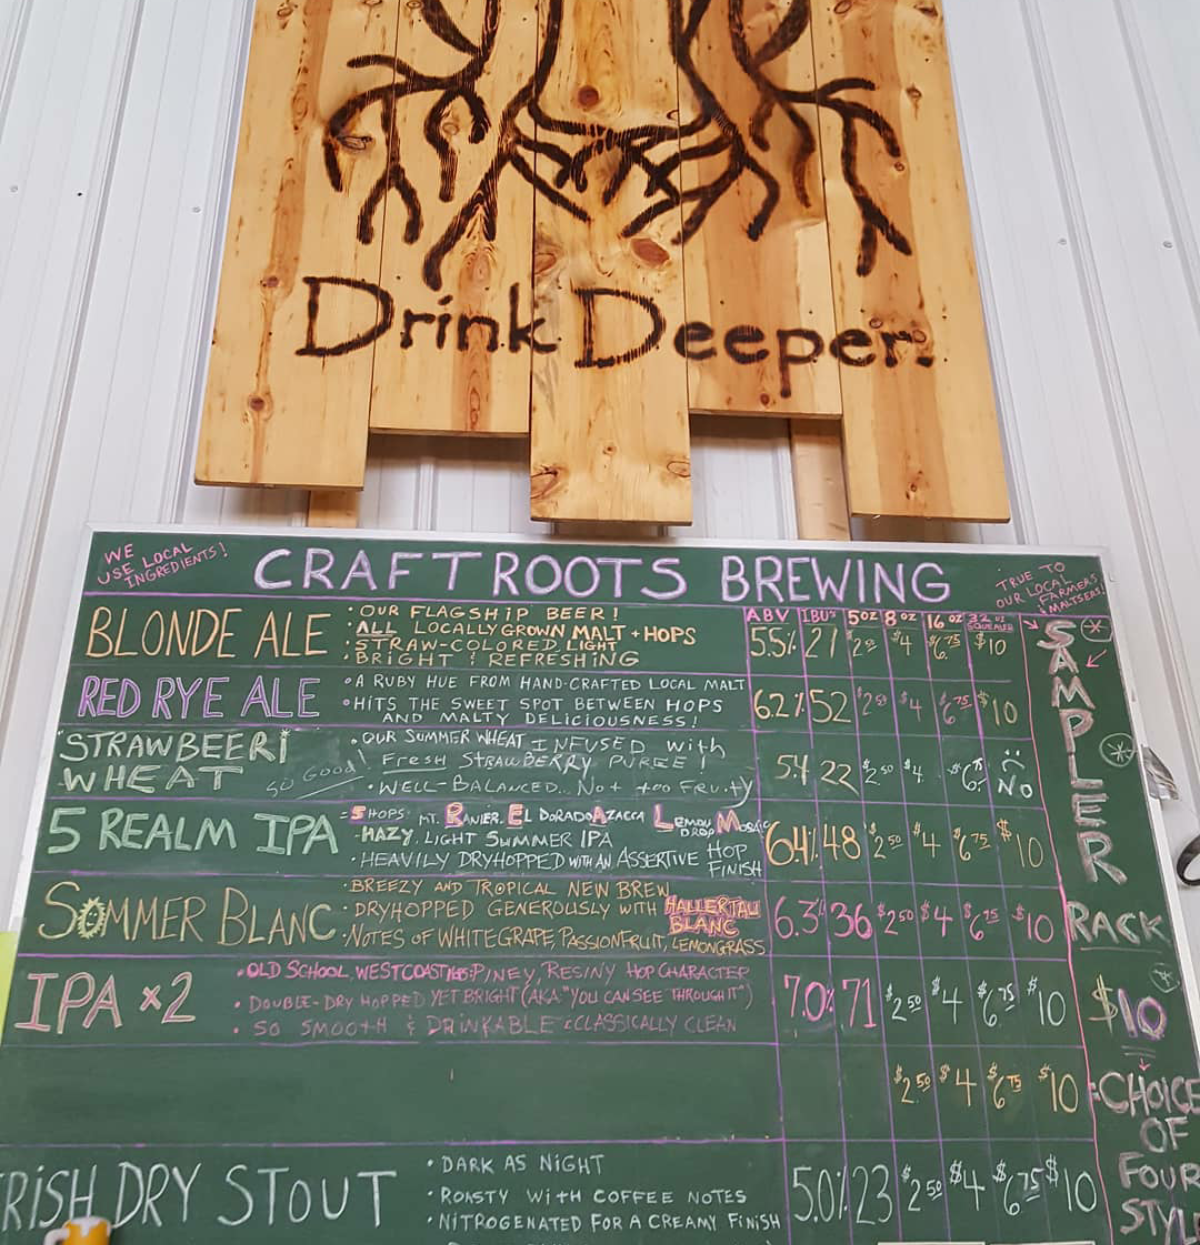 Drink Deeper.
WE USE LOCAL INGREDIENTS!
CRAFT ROOTS BREWING
TRUE TO OUR LOCAL FARMERS & MALTSERS!
ABV IBU'S 5oz 8oz 16 oz 32 oz SQUEALER
BLONDE ALE
• OUR FLAGSHIP BEER!
• ALL LOCALLY GROWN MALT + HOPS
• STRAW-COLORED LIGHT
• BRIGHT & REFRESHING
5.5% 21 $2.50 $4 $6.75 $10
RED RYE ALE
• A RUBY HUE FROM HAND-CRAFTED LOCAL MALT
• HITS THE SWEET SPOT BETWEEN HOPS
AND MALTY DELICIOUSNESS!
6.2% 52 $2.50 $4 $6.75 $10
STRAWBEERi
WHEAT
SO GOOD!
• OUR SUMMER WHEAT INFUSED with
FRESH STRAWBERRY PUREE!
• WELL-BALANCED... Not too FRUITY
5.4 22 $2.50 $4 $6.75 NO
5 REALM IPA
= 5 HOPS: MT. RANIER. EL DORADO AZACCA LEMON DROP MOSAIC
• HAZY, LIGHT SUMMER IPA
• HEAVILY DRYHOPPED WITH AN ASSERTIVE HOP
FINISH
6.4% 48 $2.50 $4 $6.75 $10
SOMMER BLANC
• BREEZY AND TROPICAL NEW BREW
• DRYHOPPED GENEROUSLY WITH HALLERTAU
BLANC
• NOTES OF WHITE GRAPE, PASSIONFRUIT, LEMONGRASS
6.3% 36 $2.50 $4 $6.75 $10
IPA x2
• OLD SCHOOL, WEST COAST PINEY, RESINY HOP CHARACTER
• DOUBLE-DRY HOPPED YET BRIGHT (AKA "YOU CAN SEE THROUGH IT")
• SO SMOOTH & DRINKABLE & CLASSICALLY CLEAN
7.0% 71 $2.50 $4 $6.75 $10
$2.50 $4 $6.75 $10
RISH DRY STOUT
• DARK AS NIGHT
• ROASTY WITH COFFEE NOTES
• NITROGENATED FOR A CREAMY FINISH
5.0% 23 $2.50 $4 $6.75 $10
SAMPLER
RACK
$10
CHOICE
OF
FOUR
STYL